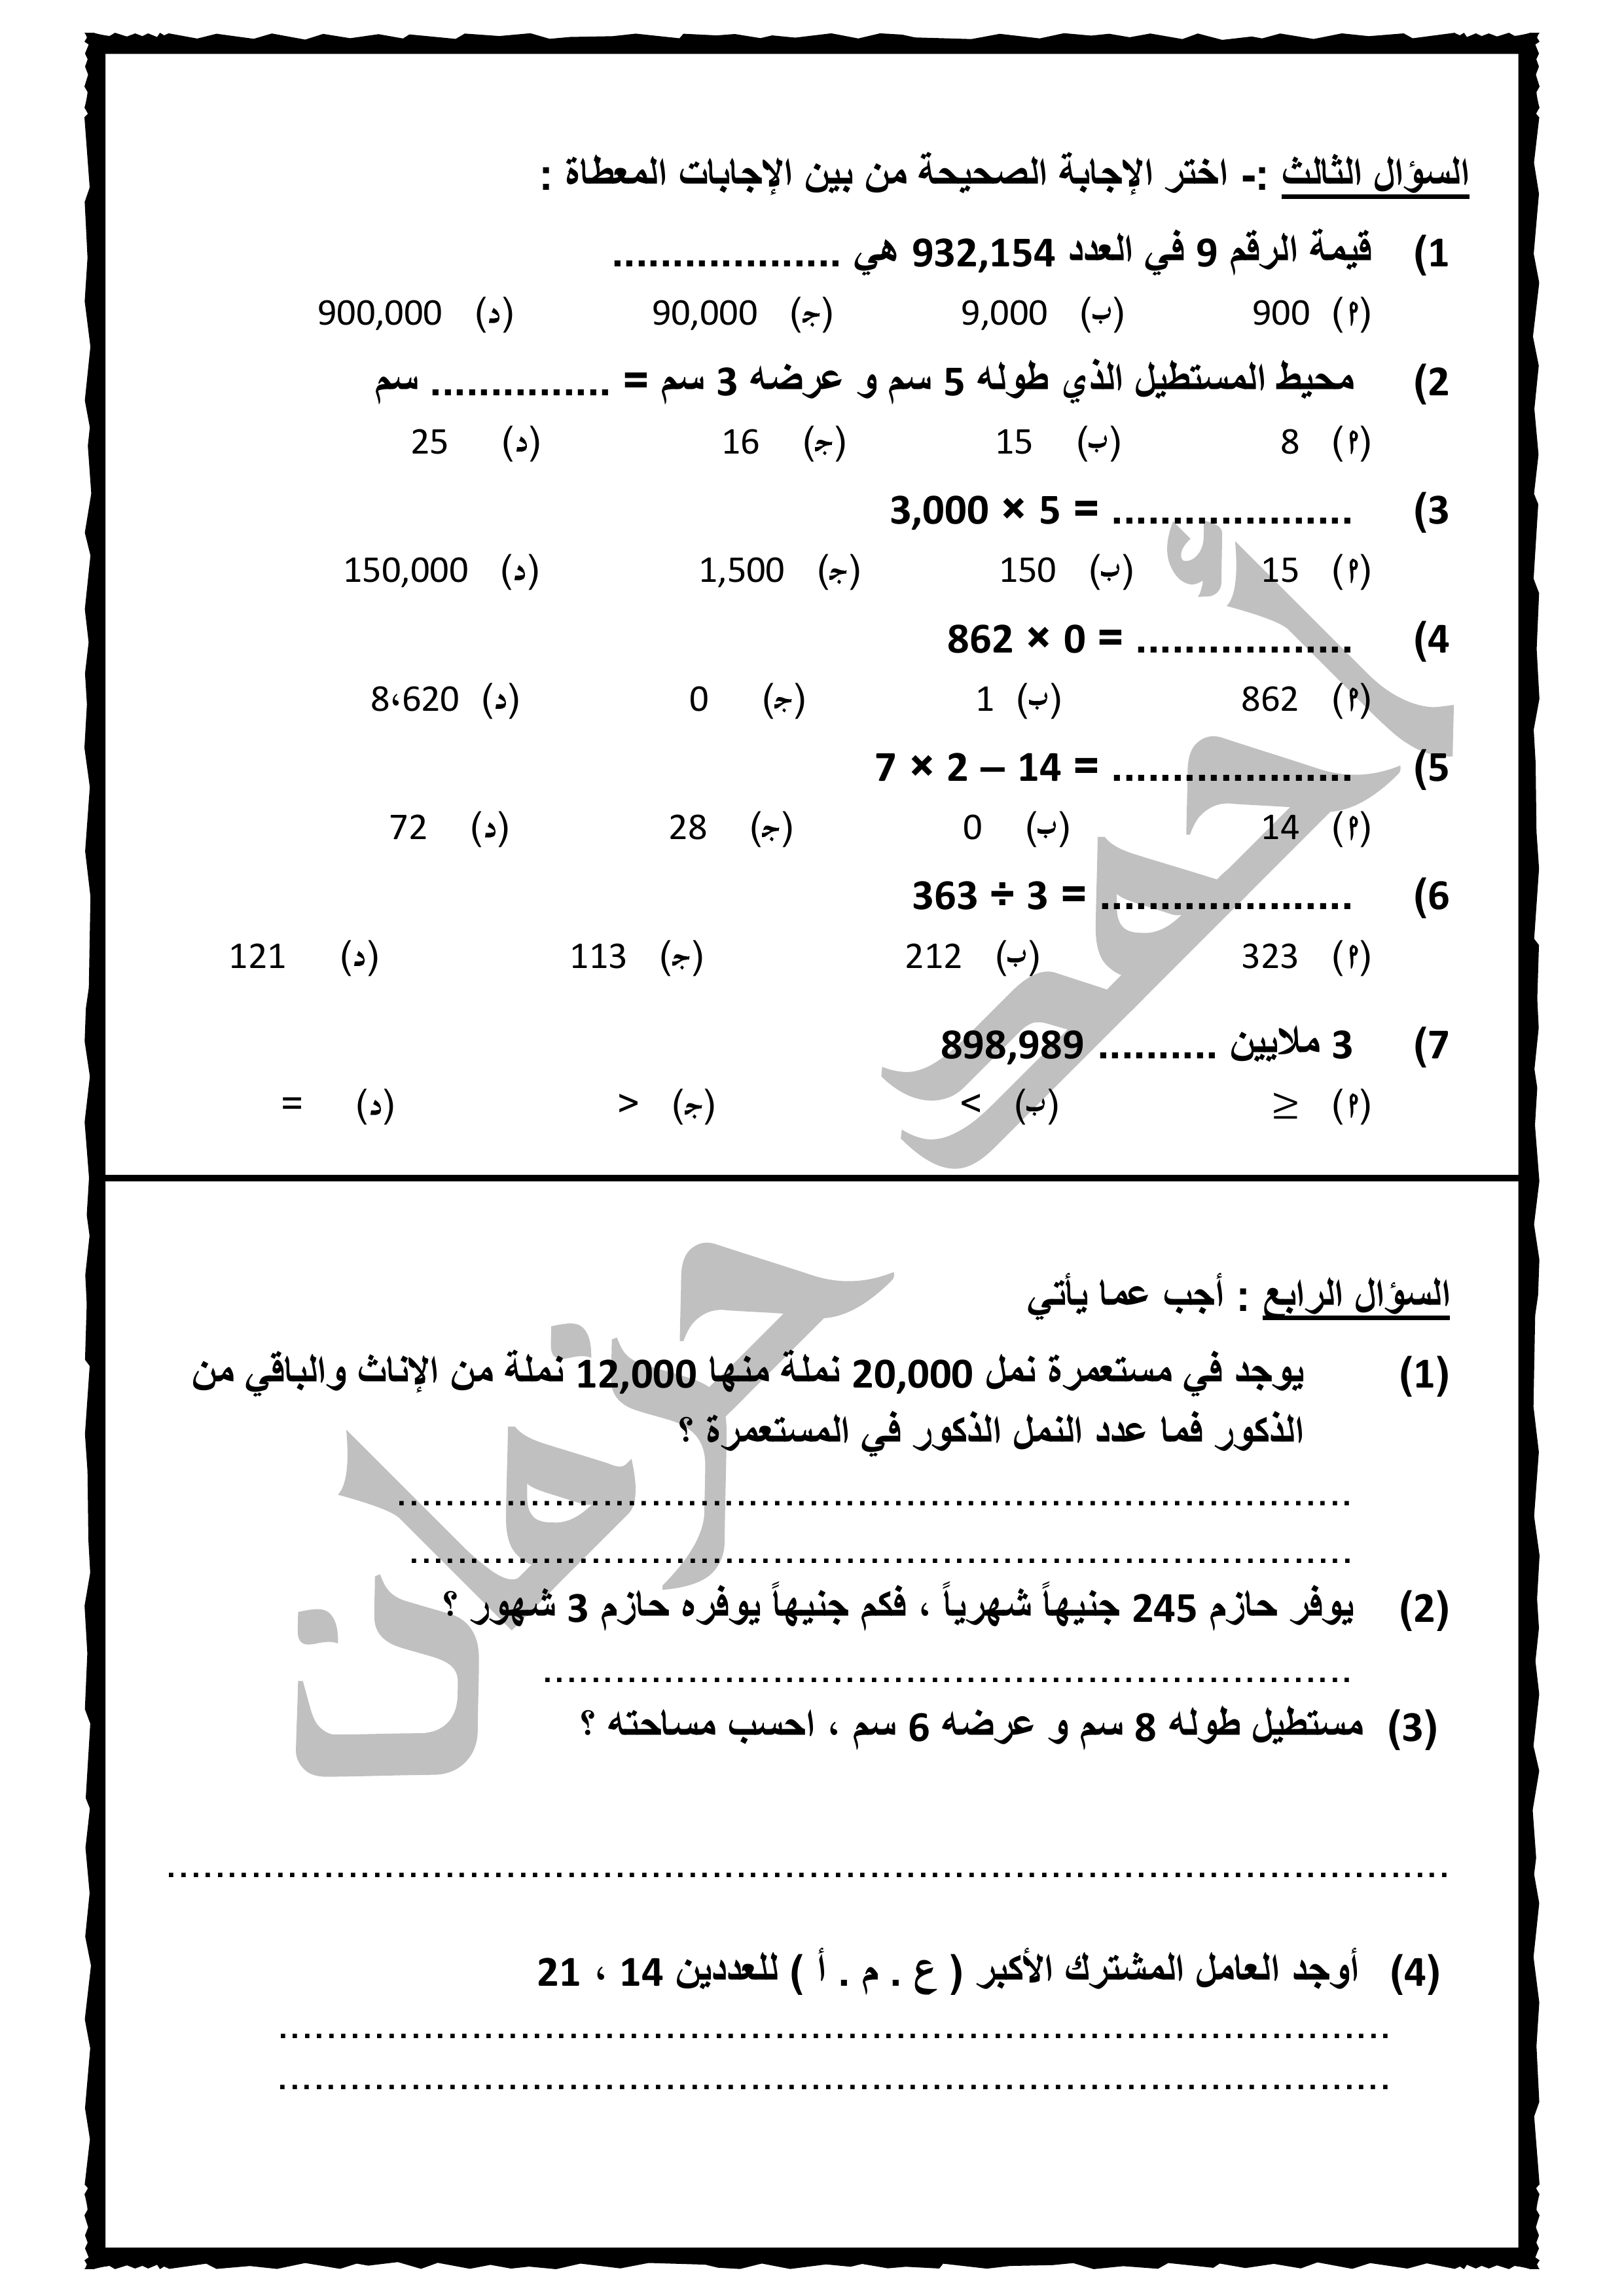 السؤال الثالث :- اختر الإجابة الصحيحة من بين الإجابات المعطاة :
1) قيمة الرقم 9 في العدد 932,154 هي ...................
(أ) 900 (ب) 9,000 (ج) 90,000 (د) 900,000
2) محيط المستطيل الذي طوله 5 سم و عرضه 3 سم = ............... سم
(أ) 8 (ب) 15 (ج) 16 (د) 25
3) 3,000 × 5 = ....................
(أ) 15 (ب) 150 (ج) 1,500 (د) 150,000
4) 862 × 0 = ..................
(أ) 862 (ب) 1 (ج) 0 (د) 8،620
5) 7 × 2 – 14 = ....................
(أ) 14 (ب) 0 (ج) 28 (د) 72
6) 363 ÷ 3 = .....................
(أ) 323 (ب) 212 (ج) 113 (د) 121
7) 3 ملايين .......... 898,989
(أ) ≥ (ب) < (ج) > (د) =
السؤال الرابع : أجب عما يأتي
(1) يوجد في مستعمرة نمل 20,000 نملة منها 12,000 نملة من الإناث والباقي من
الذكور فما عدد النمل الذكور في المستعمرة ؟
................................................................................
...............................................................................
(2) يوفر حازم 245 جنيهاً شهرياً ، فكم جنيهاً يوفره حازم 3 شهور ؟
....................................................................
(3) مستطيل طوله 8 سم و عرضه 6 سم ، احسب مساحته ؟
...........................................................................................................
(4) أوجد العامل المشترك الأكبر ( ع . م . أ ) للعددين 14 ، 21
.............................................................................................
.............................................................................................
أحمد حزمان